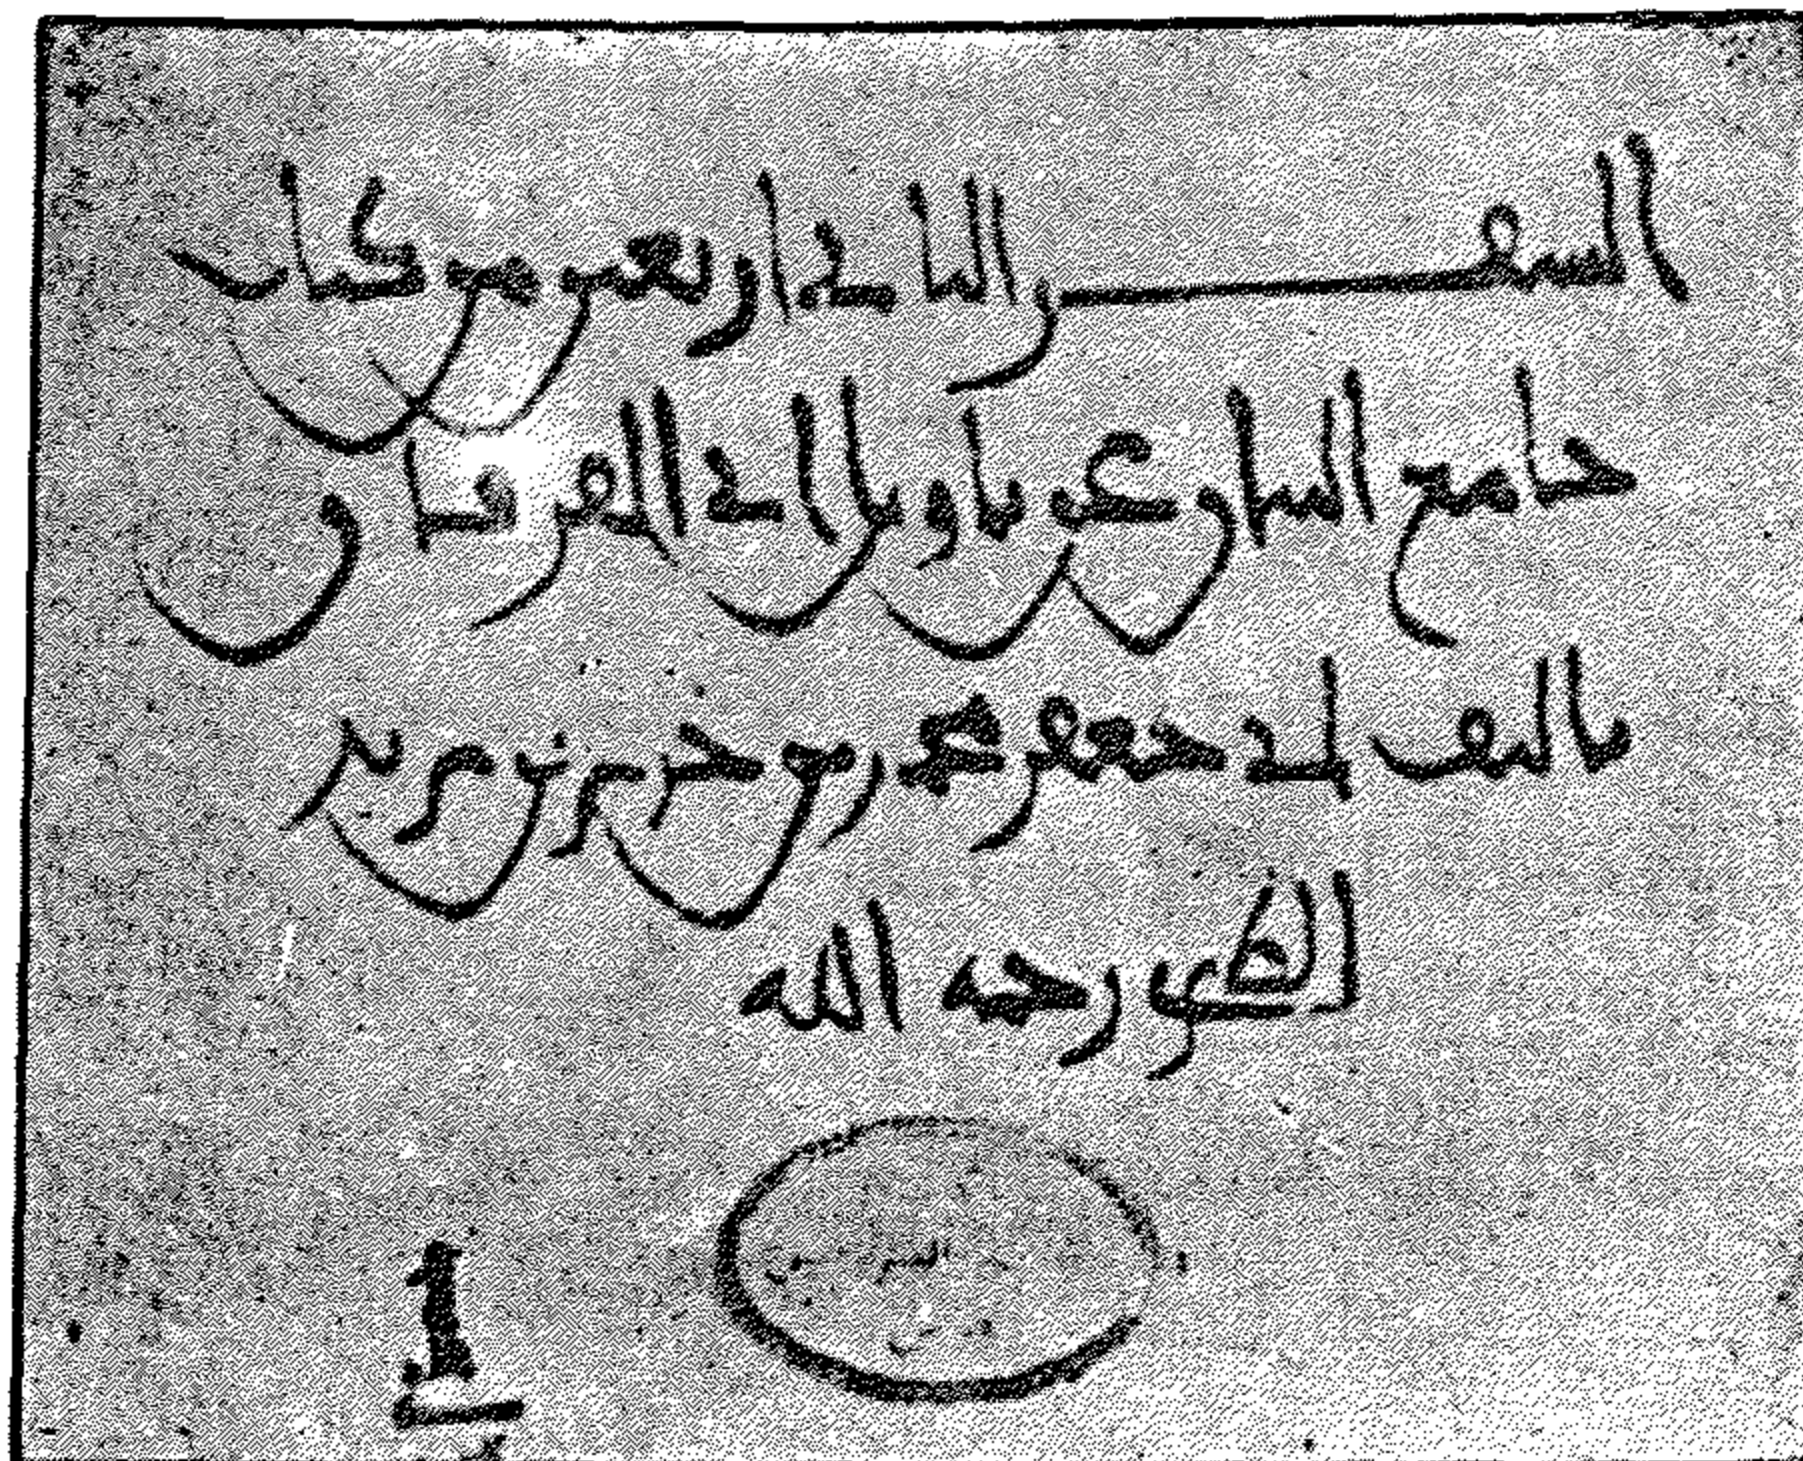 السفر الثاني اربعين من كتاب
جامع البيان عن تاويل اي الفرقان
تاليف ابي جعفر محمد بن جرير بن يزيد
الطبري رحمه الله
1